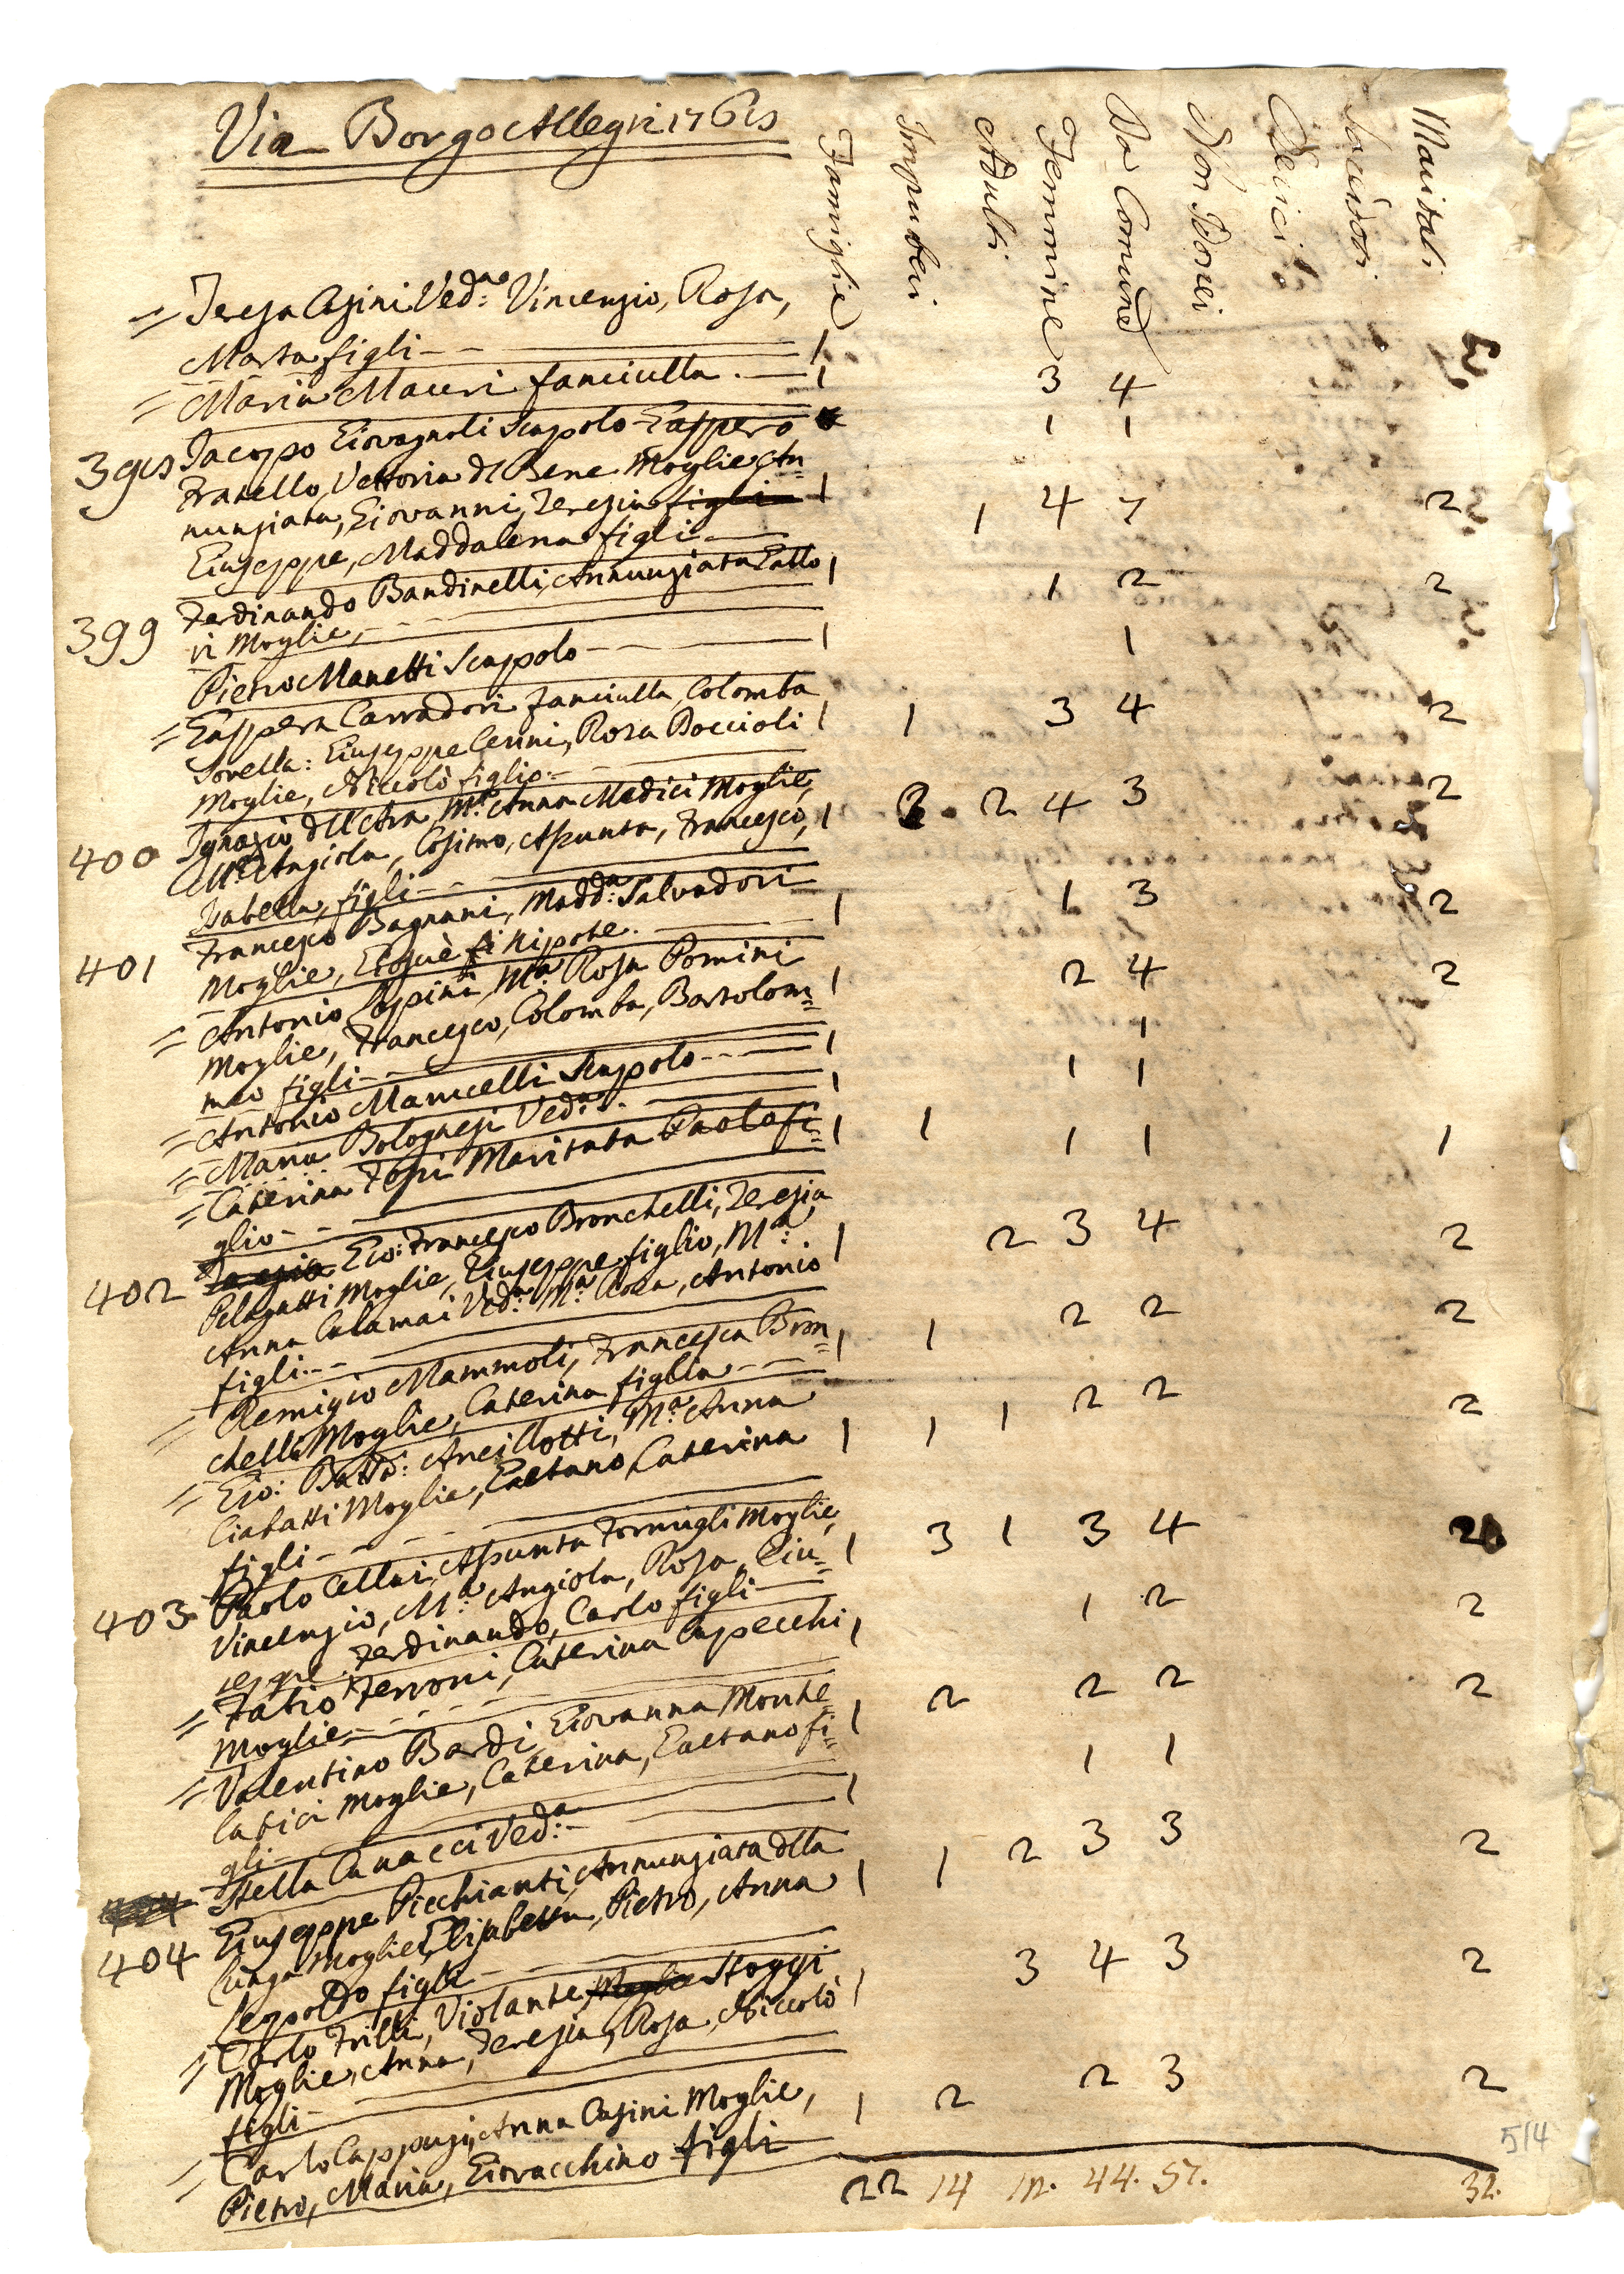 Via Borgo Allegri 1768
Famiglie Impuberi Adulti Femmine Da Comunē Non Idonei Cherici Sacerdoti Maritati
= Teresa Casini Ved.ª Vincenzio, Rosa,
Marta figli 1 3 4
= Maria Maceri fanciulla. 1 1 1
398 Jacopo Giovagnoli Scapolo Gaspero
Fratello, Vettoria del Bene Moglie An=
nunziata, Giovanni, Teresia figli 1 1 4 7 2
Giuseppe, Maddalena figli
399 Ferdinando Bandinelli, Annunziata Gallo
ri Moglie 1 1 2 2
Pietro Manetti Scapolo 1 1
= Gaspera Carradori fanciulla, Colomba
Sorella: Giuseppe Cerini, Rosa Boccioli 1 1 3 4 2
Moglie, Niccolò figlio
400 Ignazio dell'Ara, M.ª Anna Medici Moglie,
M.ª Angiola, Cosimo, Assunta, Francesco, 1 2 4 3 2
Isabella, figli
401 Francesco Bagnani, Madd.ª Salvadori
Moglie, Giosuè fi Nipote. 1 1 3 2
= Antonio Lappini, M.ª Rosa Pomini
Moglie, Francesco, Colomba, Bartolom= 1 2 4 2
meo figli
= Antonio Manicelli Scapolo 1 1
= Maria Bolognesi Ved.ª 1 1 1
= Caterina Fossi Maritata Paolo fi= 1 1 1 1 1
glio
402 Gio: Francesco Bronchelli, Teresia
Pelagatti Moglie, Giuseppe figlio, M.ª 1 2 3 4 2
Anna Calamai Ved.ª M.ª Rosa, Antonio
figli
= Remigio Mammoli, Francesca Bron= 1 1 2 2 2
chelli Moglie, Caterina figlia
= Gio: Batta: Ancillotti, M.ª Anna
Ciabatti Moglie, Gaetano, Caterina 1 1 1 2 2 2
figli
403 Paolo Cellai, Assunta Formigli Moglie,
Vincenzio, M.ª Angiola, Rosa, Giu= 1 3 1 3 4 2
seppe, Ferdinando, Carlo figli
= Fabio Ferroni, Caterina Capecchi 1 1 2 2
Moglie
= Valentino Bardi, Giovanna Monte
latici Moglie, Caterina, Gaetano fi= 1 2 2 2 2
gli
Stella Canacci Ved.ª 1 1 1
404 Giuseppe Picchianti, Annunziata della
Lunga Moglie, Elisabetta, Pietro, Anna 1 1 2 3 3 2
Leopoldo figli
= Carlo Frilli, Violante Moglie Stoggi
Moglie, Anna, Teresia, Rosa, Niccolò 1 3 4 3 2
figli
= Carlo Cappugi, Anna Casini Moglie, 1 2 2 3 2
Pietro, Maria, Giovacchino figli
22 14 12. 44. 57. 32.
514